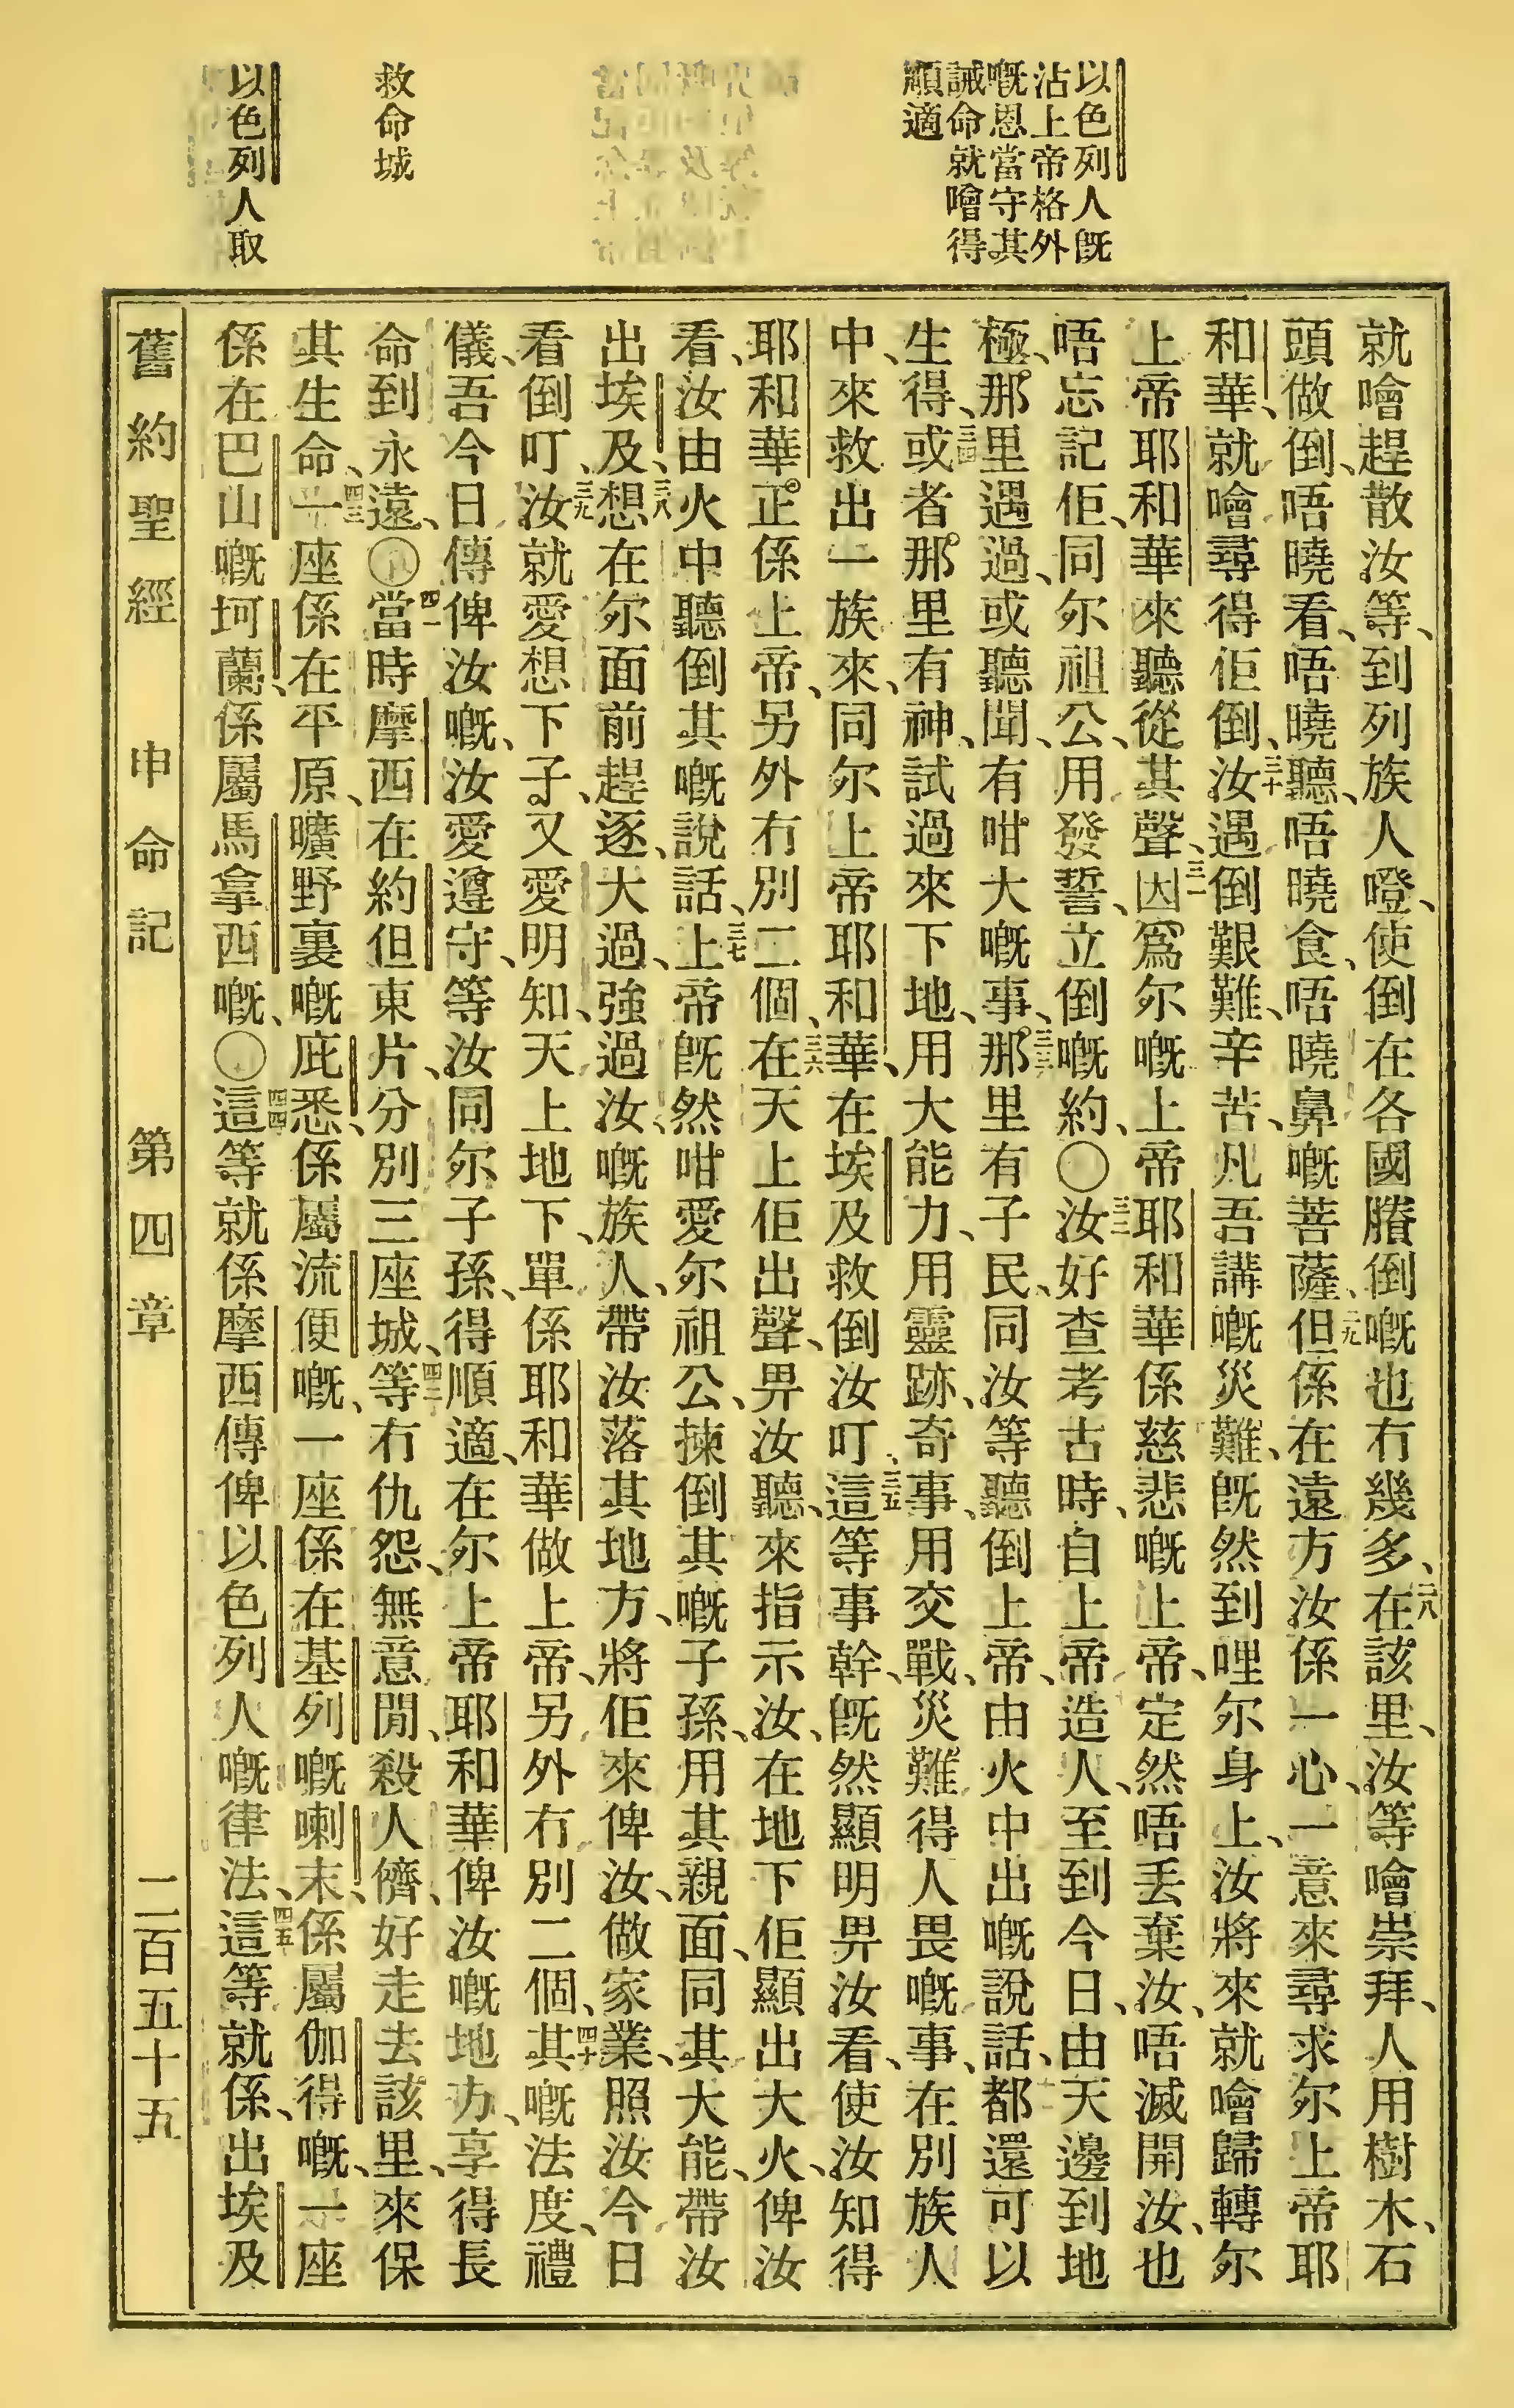 以色列人既
沾上帝格外
嘅恩當守其
誡命就噲得
順適
救命城
以色列人取
就噲趕散汝等、到列族人噔、使倒在各國賸倒嘅也冇幾多、二八在該里、汝等噲崇拜、人用樹木、石
頭做倒、唔曉看、唔曉聽、唔曉食、唔曉鼻嘅菩薩、二九但係在遠方汝係一心、一意來尋求尔上帝耶
和華、就噲尋得佢倒、三十汝遇倒艱難、辛苦、凡吾講嘅災難、既然到哩尔身上、汝將來就噲歸轉尔
上帝耶和華來聽從其聲、三一因爲尔嘅上帝耶和華係慈悲嘅上帝、定然唔丢棄汝、唔滅開汝、也
唔忘記佢、同尔祖公、用發誓、立倒嘅約、〇三二汝好查考古時、自上帝造人、至到今日、由天邊到地
極、那里遇過、或聽聞、有咁大嘅事、三三那里有子民、同汝等聽倒上帝、由火中出嘅說話、都還可以
生得、三四或者那里有神、試過來下地、用大能力、用靈跡、奇事、用交戰、災難得人畏嘅事、在別族人
中、來救出一族來、同尔上帝耶和華、在埃及救倒汝叮、三五這等事幹、既然顯明畀汝看、使汝知得
耶和華正係上帝、另外冇別二個、三六在天上佢出聲、畀汝聽、來指示汝、在地下佢顯出大火、俾汝
看、汝由火中聽倒其嘅說話、三七上帝既然咁愛尔祖公、揀倒其嘅子孫、用其親面、同其大能、帶汝
出埃及、三八想在尔面前趕逐、大過、強過汝嘅族人、帶汝落其地方、將佢來俾汝、做家業、照汝今日
看倒叮、三九汝就愛想下子、又愛明知、天上地下、單係耶和華做上帝、另外冇別二個、四十其嘅法度、禮
儀、吾今日傳俾汝嘅、汝愛遵守、等汝同尔子孫、得順適、在尔上帝耶和華俾汝嘅地方、享得長
命到永遠、〇四一當時摩西在約但東片、分別三座城、四二等冇仇怨、無意閒、殺人儕、好走去該里、來保
其生命、四三一座係在平原、曠野裏嘅庇悉、係屬流便嘅、一座係在基列嘅喇末、係屬伽得嘅、一座
係在巴山嘅坷蘭、係屬馬拿西嘅、〇四四這等就係摩西傳俾以色列人嘅律法、四五這等就係、出埃及
舊約聖經 申命記 第四章 二百五十五